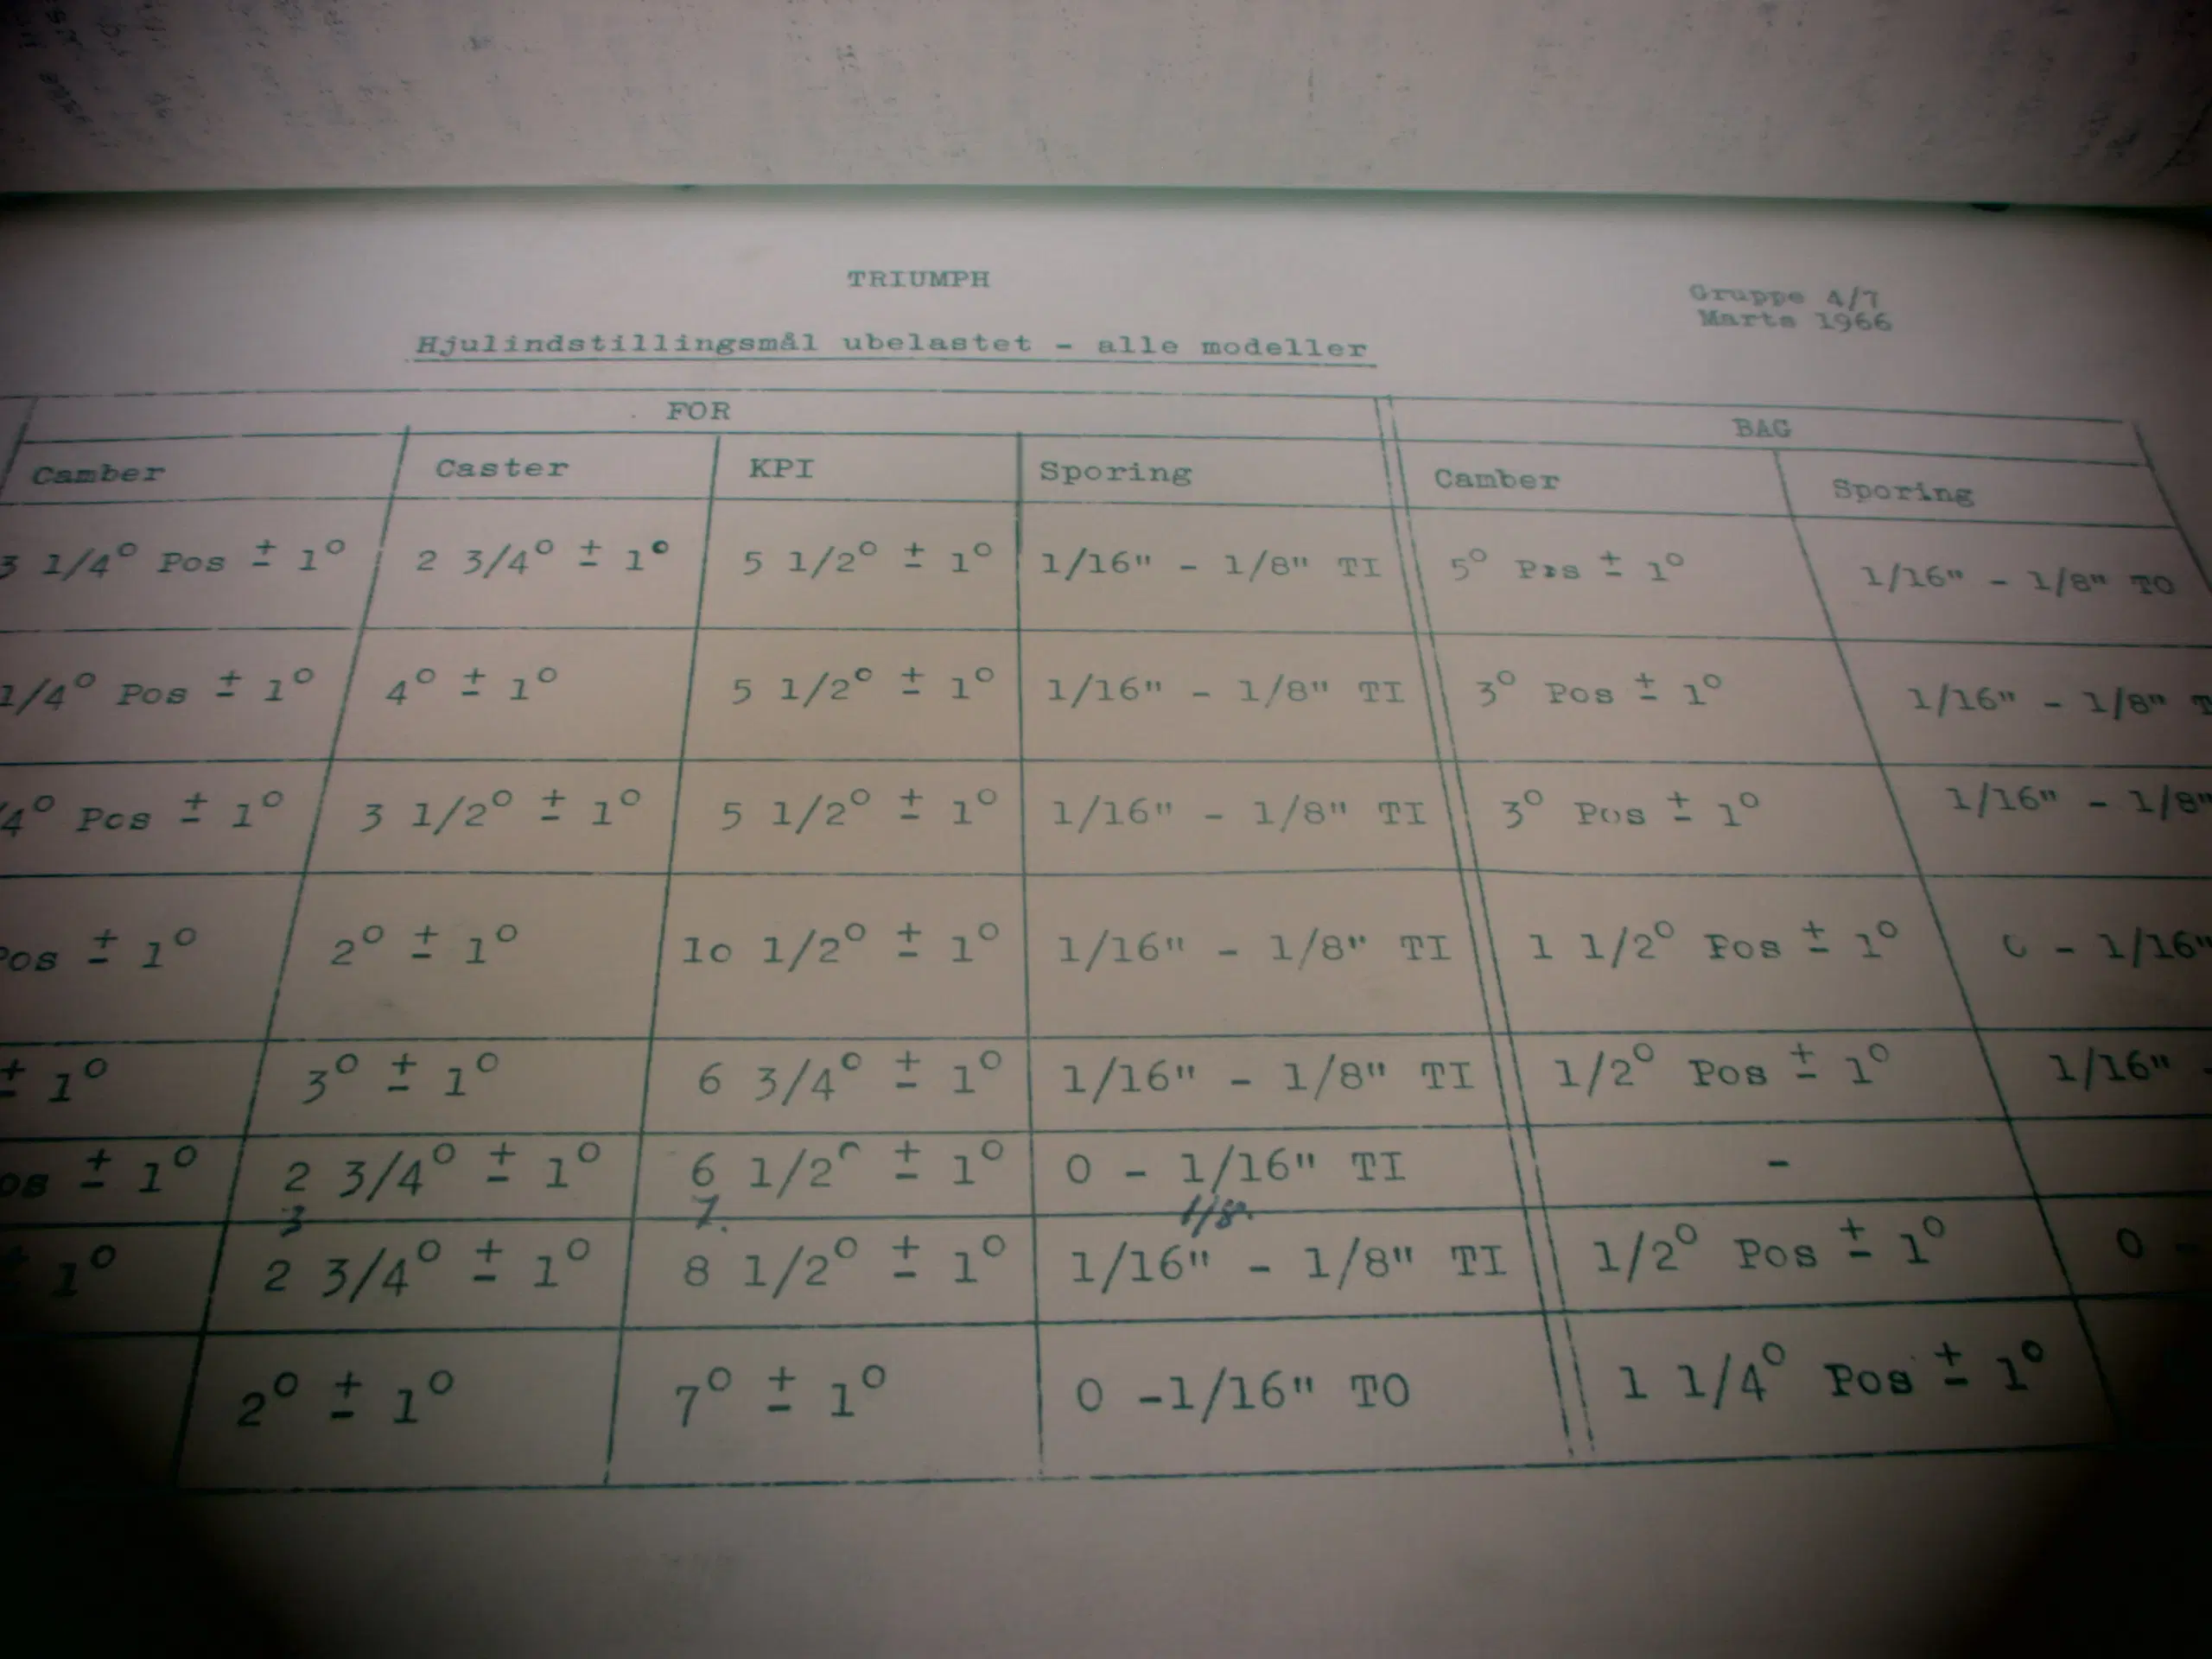 TRIUMPH
Gruppe 4/7
Marts 1966
Hjulindstillingsmål ubelastet - alle modeller
FOR BAG
Camber Caster KPI Sporing Camber Sporing
3 1/4° Pos ± 1° 2 3/4° ± 1° 5 1/2° ± 1° 1/16" - 1/8" TI 5° Pos ± 1° 1/16" - 1/8" TO
1/4° Pos ± 1° 4° ± 1° 5 1/2° ± 1° 1/16" - 1/8" TI 3° Pos ± 1° 1/16" - 1/8" T
/4° Pos ± 1° 3 1/2° ± 1° 5 1/2° ± 1° 1/16" - 1/8" TI 3° Pos ± 1° 1/16" - 1/8"
Pos ± 1° 2° ± 1° 10 1/2° ± 1° 1/16" - 1/8" TI 1 1/2° Pos ± 1° 0 - 1/16"
± 1° 3° ± 1° 6 3/4° ± 1° 1/16" - 1/8" TI 1/2° Pos ± 1° 1/16" -
os ± 1° 2 3/4° ± 1° 6 1/2° ± 1° 0 - 1/16" TI -
3 7. 1/8"
± 1° 2 3/4° ± 1° 8 1/2° ± 1° 1/16" - 1/8" TI 1/2° Pos ± 1° 0 -
2° ± 1° 7° ± 1° 0 -1/16" TO 1 1/4° Pos ± 1°